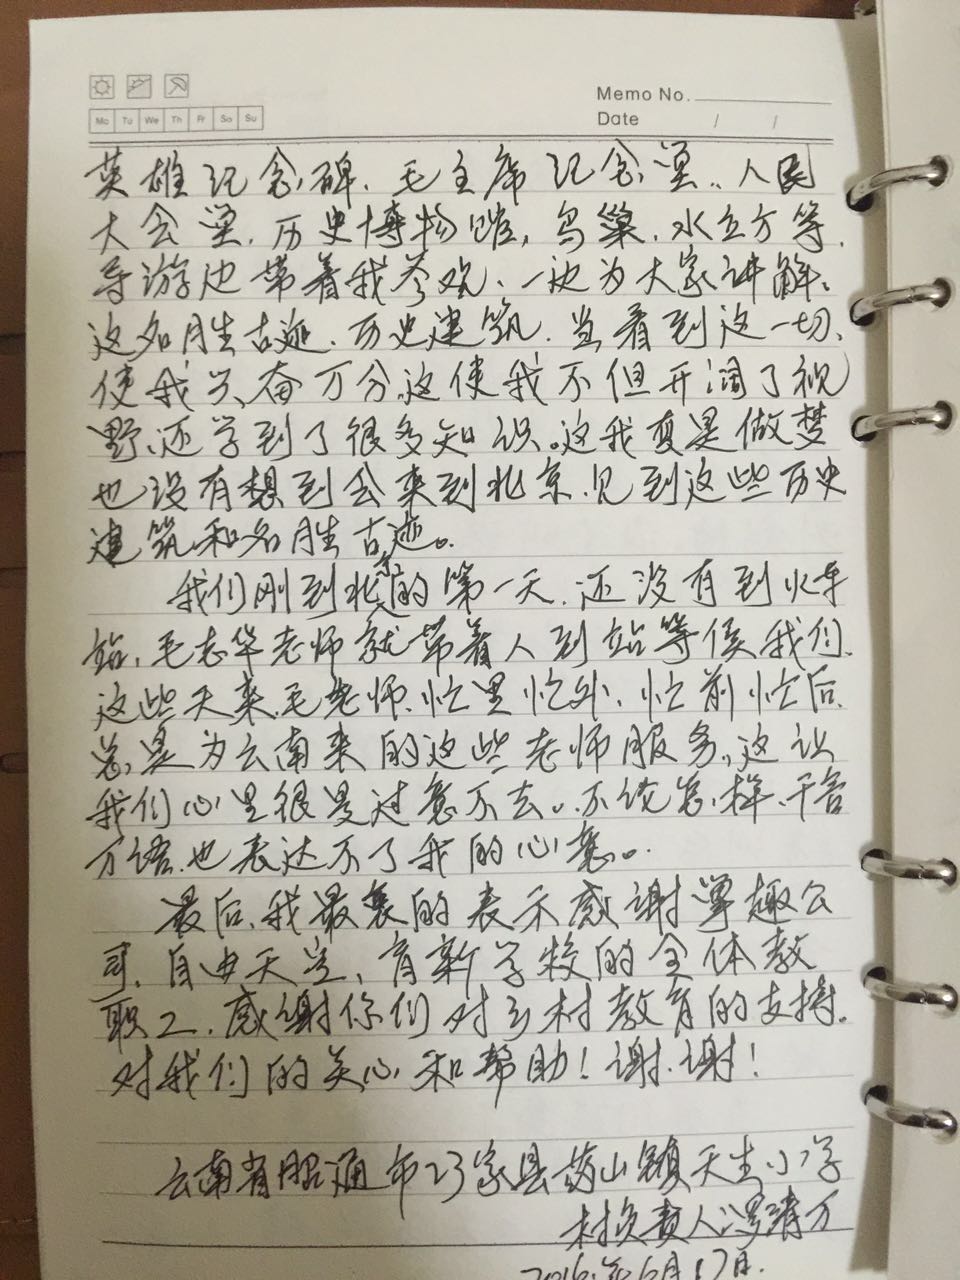 Memo No.
Mo Tu We Th Fr Sa Su
Date / /
英雄记念碑、毛主席纪念堂、人民
大会堂、历史博物馆,鸟巢、水立方等、
导游边带着我参观、一边为大家讲解。
这名胜古迹、历史建筑、当看到这一切、
使我兴奋万分,这使我不但开阔了视
野、还学到了很多知识。这我真是做梦
也没有想到会来到北京、见到这些历史
建筑和名胜古迹。
我们刚到北京的第一天、还没有到火车
站、毛志华老师就带着人到站等侯我们、
这些天来、毛老师、忙里忙外、忙前忙后、
总是为云南来的这些老师服务、这让
我们心里很是过意不去。不论怎样、千言
万语也表达不了我的心意。
最后、我最衷的表示感谢 趣公
司、自由天空、育新学校的全体教
职工、感谢你们对乡村教育的支持。
对我们的关心和帮助!谢谢!
云南省昭通市巧家县药山镇天生小学
村负责人 万
2016年6月17日.